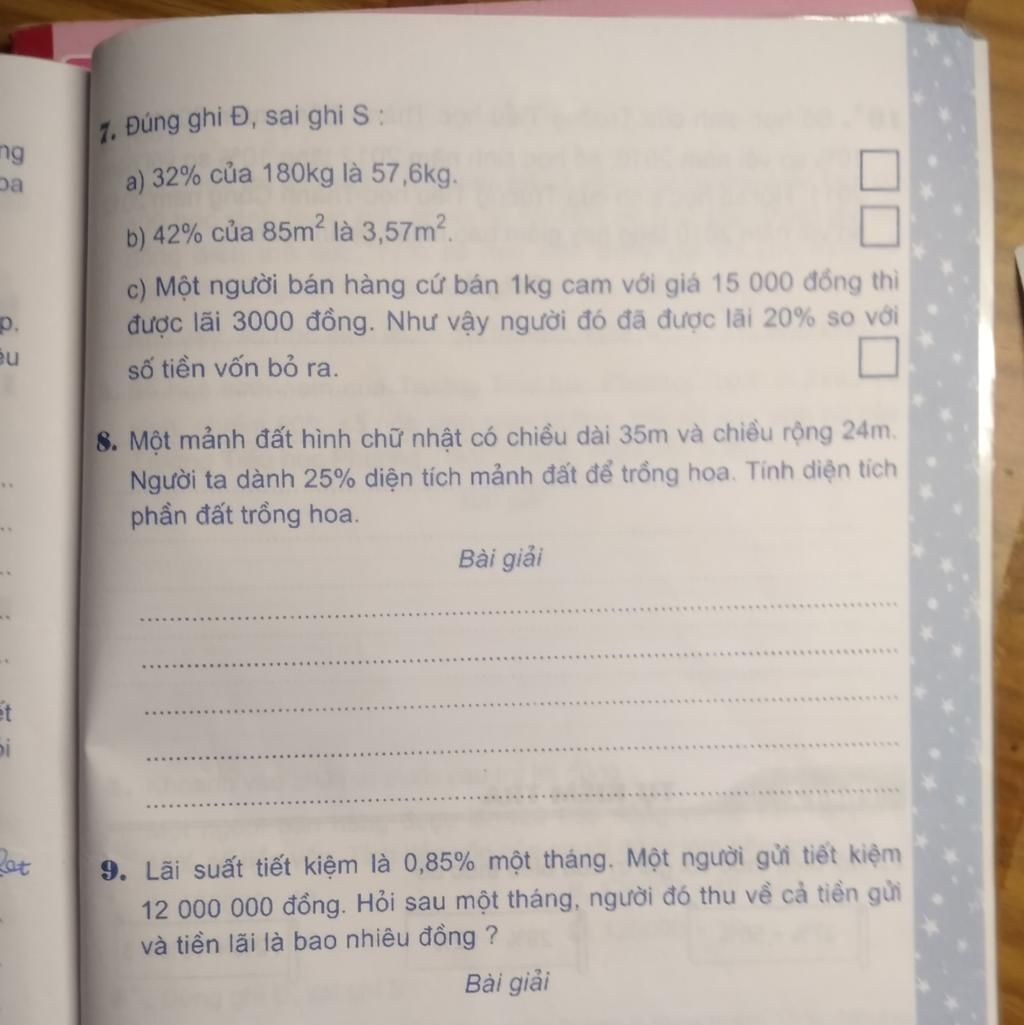 7. Đúng ghi Đ, sai ghi S :
a) 32% của 180kg là 57,6kg.
b) 42% của 85m² là 3,57m².
c) Một người bán hàng cứ bán 1kg cam với giá 15 000 đồng thì
được lãi 3000 đồng. Như vậy người đó đã được lãi 20% so với
số tiền vốn bỏ ra.
8. Một mảnh đất hình chữ nhật có chiều dài 35m và chiều rộng 24m.
Người ta dành 25% diện tích mảnh đất để trồng hoa. Tính diện tích
phần đất trồng hoa.
Bài giải
9. Lãi suất tiết kiệm là 0,85% một tháng. Một người gửi tiết kiệm
12 000 000 đồng. Hỏi sau một tháng, người đó thu về cả tiền gửi
và tiền lãi là bao nhiêu đồng ?
Bài giải